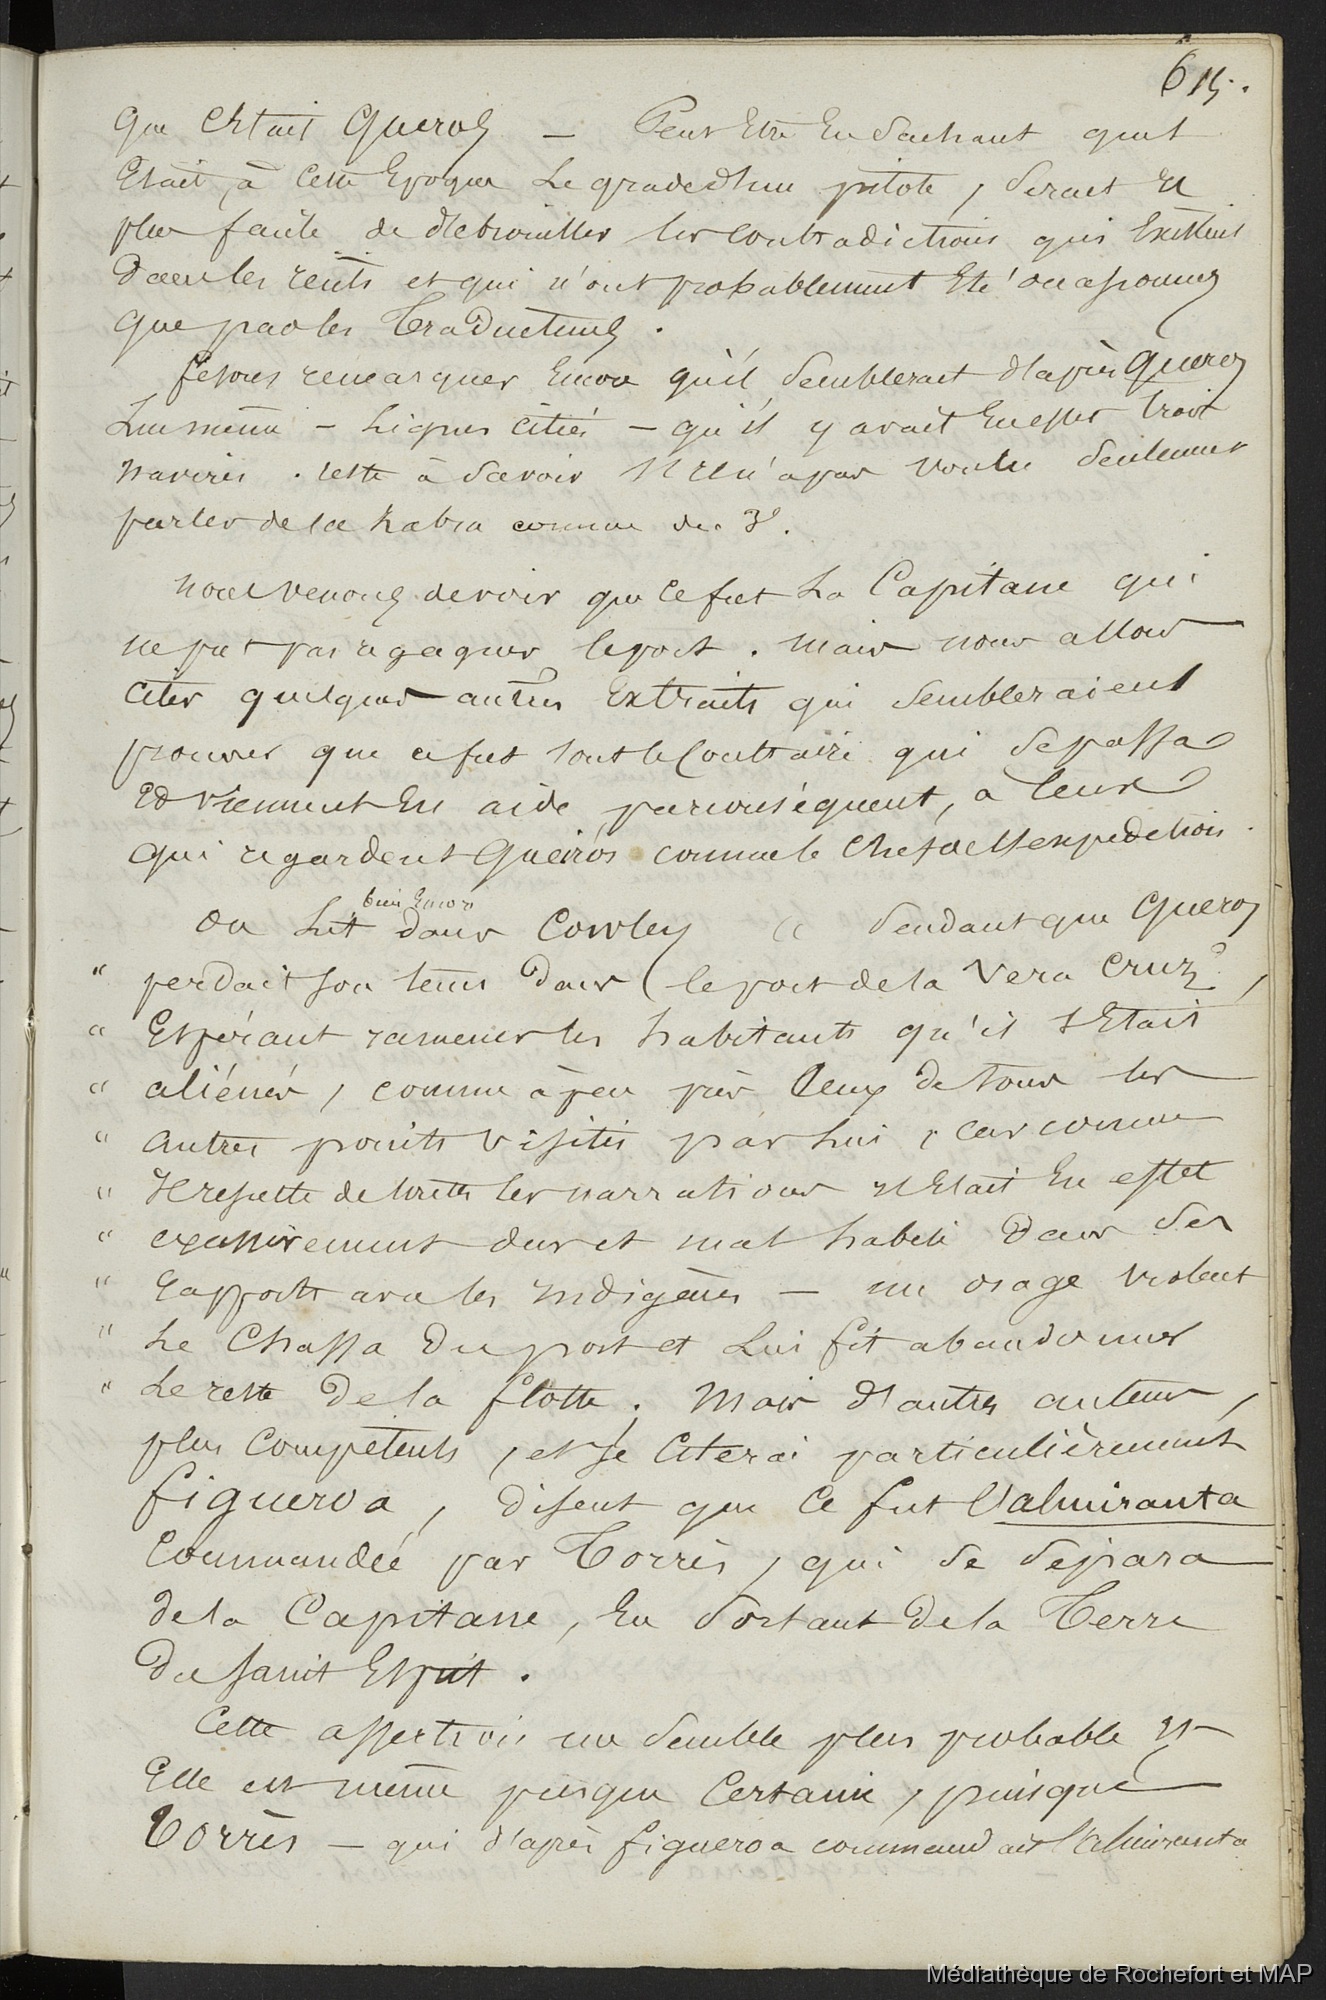 615.
que c'était Queros — Peut être en sachant quel
était, à cette époque le grade d'un pilote, serait il
plus facile de débrouiller les contradictions qui existent
dans les récits et qui n'ont probablement été occasionnés
que par les Traducteurs.
fesons remarquer encore qu'il semblerait d'après Queros
Lui même — Lignes citées — qu'il y avait en effet trois
navires. reste à savoir s'il n'a pas voulu seulement
parler de la Zabra comme du 3e.
nous venons de voir que ce fut La Capitane qui
ne put pas regagner le port. mais nous allons
citer quelques autres Extraits qui sembleraient
prouver que ce fut tout le Contraire qui se passa
et viennent en aide par conséquent, à ceux
qui regardent Queirós comme le Chef de l'expédition.
bien encore
on Lit dans Cowley " Pendant que Queros
" perdait son tems dans (le port de la Vera Cruz?,
" Espérant ramener les habitants qu'il s'était
" aliénés, comme à peu près Ceux de tous les
" autres points visités par Lui, car comme
" Il résulte de toutes les narrations il Etait En effet
" excessivement dur et mal habile Dans Ses
" rapports avec les indigènes — un orage violent
" Le Chassa Du port et Lui fit abandonner
" Le reste De la flotte. Mais d'autres auteurs,
plus Compétents, et je Citerai particulièrement
figueroa, Disent que Ce fut l'almiranta
Commandée par Torrès, qui se sépara
de la Capitane, En sortant De la Terre
Du Saint Esprit.
Cette assertion me semble plus probable et
Elle est même presque Certaine, puisque
Torrès — qui d'après figueroa commandait l'almiranta
Médiathèque de Rochefort et MAP